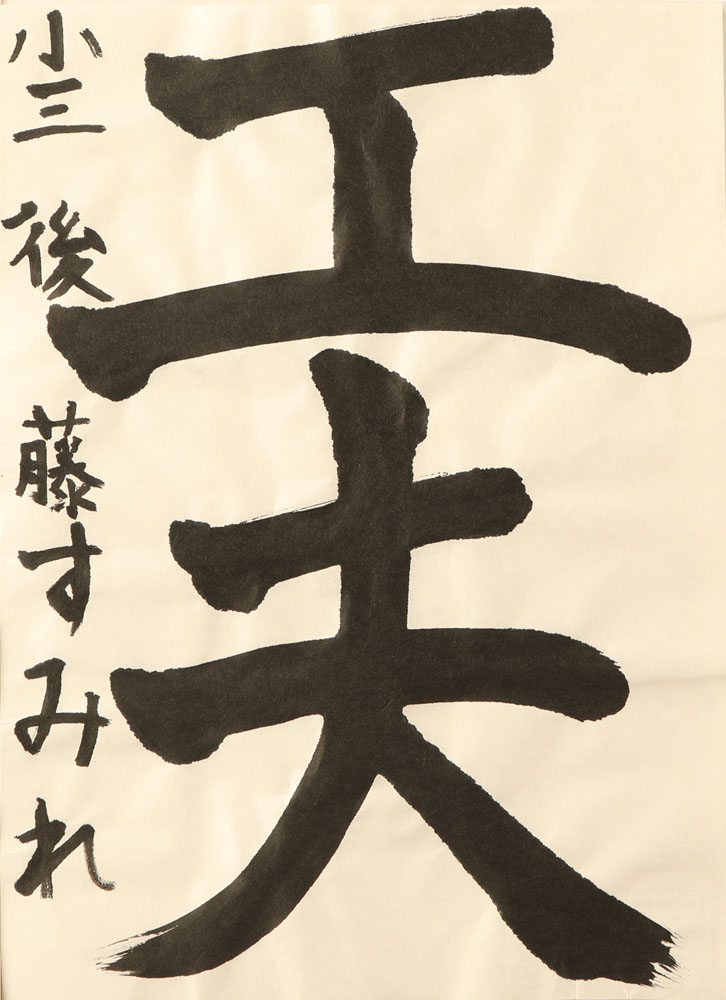 工夫
小三 後藤すみれ